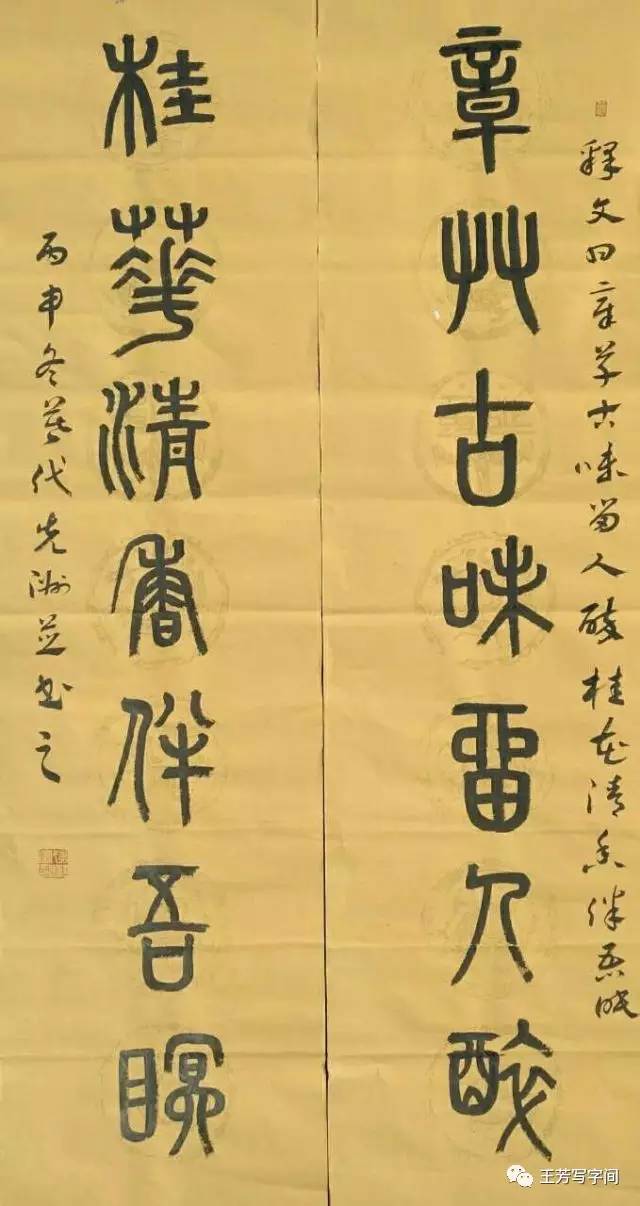 釋文曰章草古味留人醉桂花清香伴吾眠
章艸古味留人醉
桂華清香伴吾瞑
丙申冬暮代先洲並书之
王芳写字间